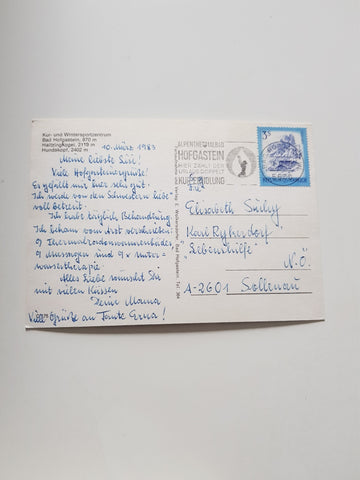 Kur- und Wintersportzentrum
Bad Hofgastein, 870 m
Haitzingkogel, 2119 m
Hundskopf, 2402 m
10. März 1983
Meine liebste Lisi!
Viele Hofgasteinergrüße!
Es gefällt mir hier sehr gut.
Ich werde von den Schwestern liebe
voll betreut.
Ich habe täglich Behandlung.
Ich bekam vom Arzt verschrieben:
9 Thermalradonwannenbäder
9 Massagen und 9x Unter-
wassertherapie.
Alles Liebe wünscht Dir
mit vielen Küssen
Deine Mama
Viele Grüße an Tante Erna!
ALPENTHERMALBAD
HOFGASTEIN
HIER ZÄHLT DER
URLAUB DOPPELT
KUR + ERHOLUNG
3 S
Elisabeth
Karl
"Lebenshilfe"
N.Ö.
A-2601 Sollenau